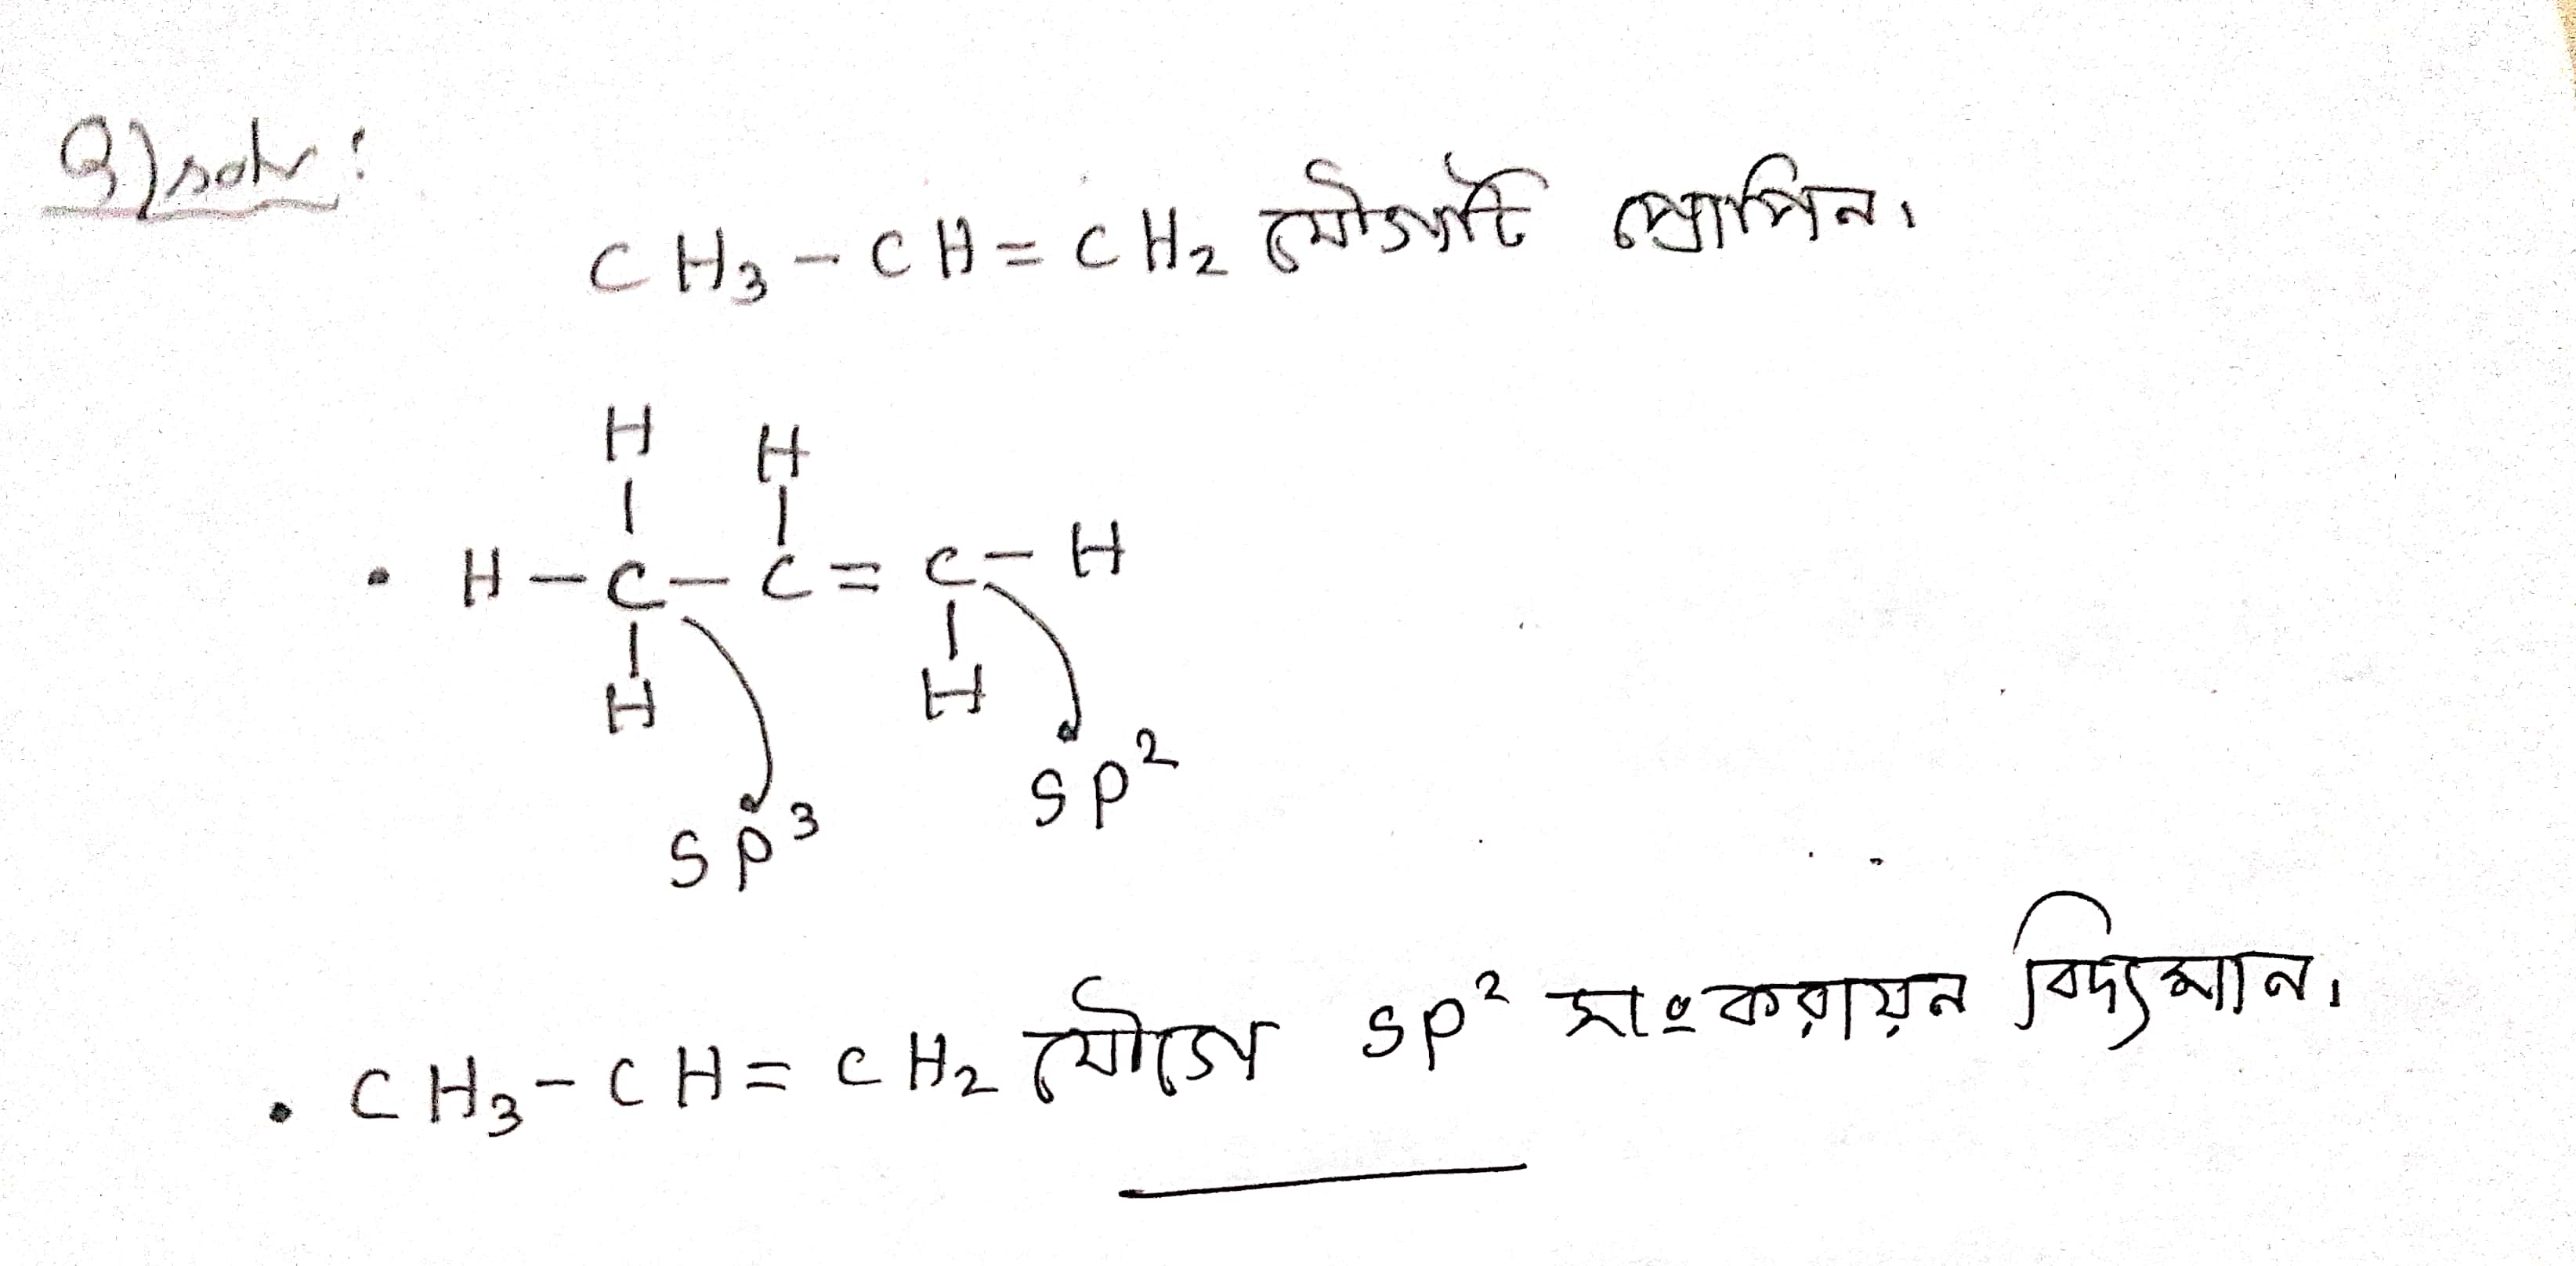 Q) solv:
CH₃ - CH = CH₂ যৌগটি প্রোপিন।
H H
• H - C - C = C - H
H H
sp³ sp²
• CH₃ - CH = CH₂ যৌগে sp² সংকরায়ন বিদ্যমান।